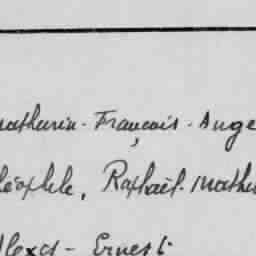 Mathurin - François - Ange
Théophile, Raphaël - Mathu
Alexis - Ernest